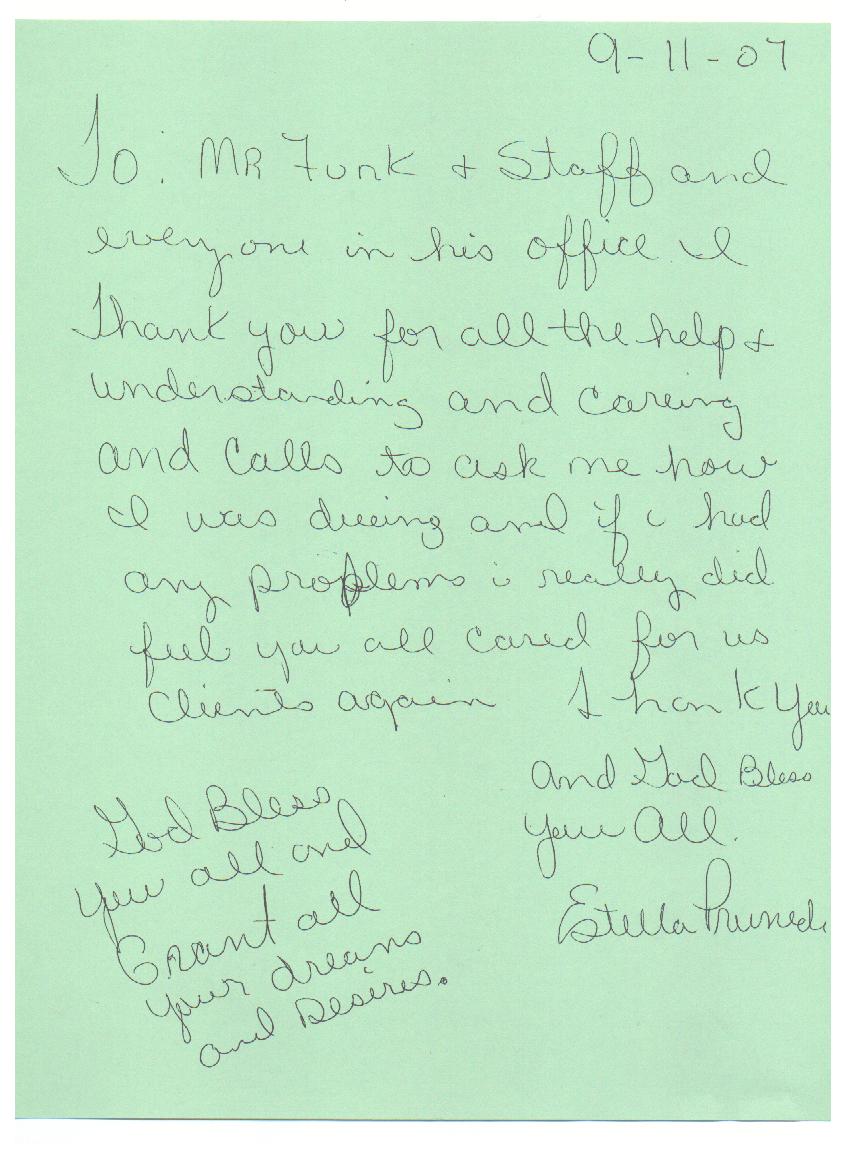 9-11-07
To: MR Funk + Staff and
everyone in his office I
Thank you for all the help +
understanding and careing
and Calls to ask me how
I was dueing and if i had
any problems i really did
feel you all cared for us
Clients again Thank You
and God Bless
You All.
Estella
God Bless
you all and
Grant all
your dreams
and Desires.